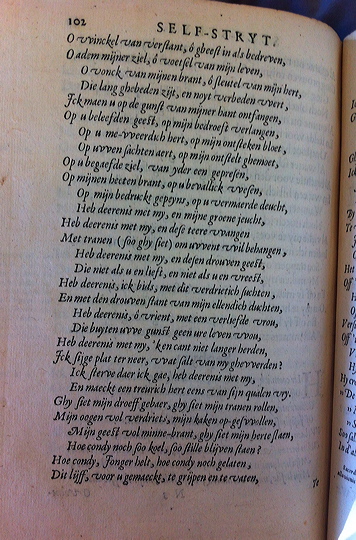 102 SELF-STRYT.
O winckel van verstant, ô gheest in als bedreven,
O adem mijner ziel, ô voetsel van mijn leven,
O vonck van mijnen brant, ô sleutel van mijn hert,
Die lang ghebeden zijt, en noyt verbeden wert,
Ick maen u op de gunst van mijner hant ontfangen,
Op u beleefden geest, op mijn bedroeft verlangen,
Op u me-weerdich hert, op mijn ontsteken bloet,
Op uwen sachten aert, op mijn ontstelt ghemoet,
Op u begaefde ziel, van yder een gepresen,
Op mijnen hecten brant, op u bevallick wesen,
Op mijn bedruckt gepeyns, op u vermaerde deucht,
Heb deerenis met my, en mijne groene jeucht,
Heb deerenis met my, en dese teere wangen
Met tranen (soo ghy siet) om uwent wil behangen,
Heb deerenis met my, en desen droeven geest,
Die niet als u en lieft, en niet als u en vreest,
Heb deerenis, ick bids, met dit verdrietich suchten,
En met den droeven stant van mijn ellendich duchten,
Heb deerenis, ô vrient, met een verliefde vrou,
Die buyten uwe gunst geen ure leven wou,
Heb deerenis met my, 'ken cant niet langer herden,
Ick sijge plat ter neer, wat salt van my ghewerden?
Ick sterve daer ick gae, heb deerenis met my,
En maeckt een treurich hert eens van sijn qualen vry.
Ghy siet mijn droeff gebaer, ghy siet mijn tranen rollen,
Mijn oogen vol verdriets, mijn kaken op-geswollen,
Mijn geest vol minne-brant, ghy siet mijn herte slaen,
Hoe condy noch soo koel, soo stille blijven staen?
Hoe condy, Jonger helt, hoe condy noch gelaten,
Dit lijff, voor u gemaeckt, te grijpen en te vaten,